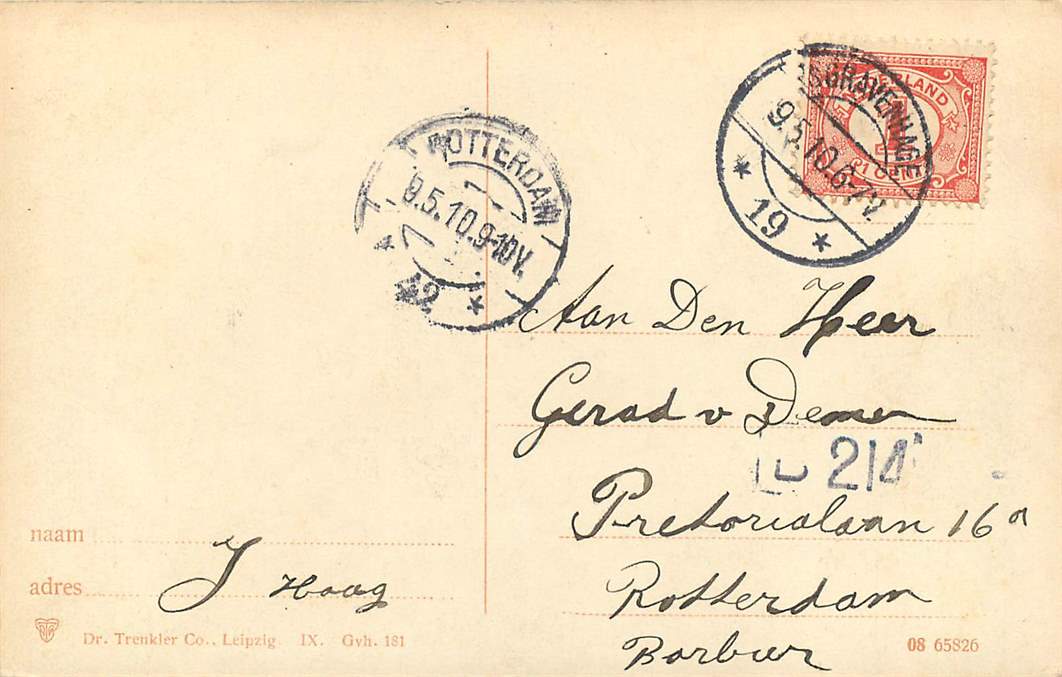 ROTTERDAM
9.5.10.9-10V.
12
'S GRAVENHAGE
9.5.10.6-7V.
19
NEDERLAND
1
1 CENT
Aan Den Heer
Gerad v Demen
214
Pretorialaan 16a
Rotterdam
Barbier
naam
adres
J Haag
Dr. Trenkler Co., Leipzig. IX. Gvh. 181
08 65826